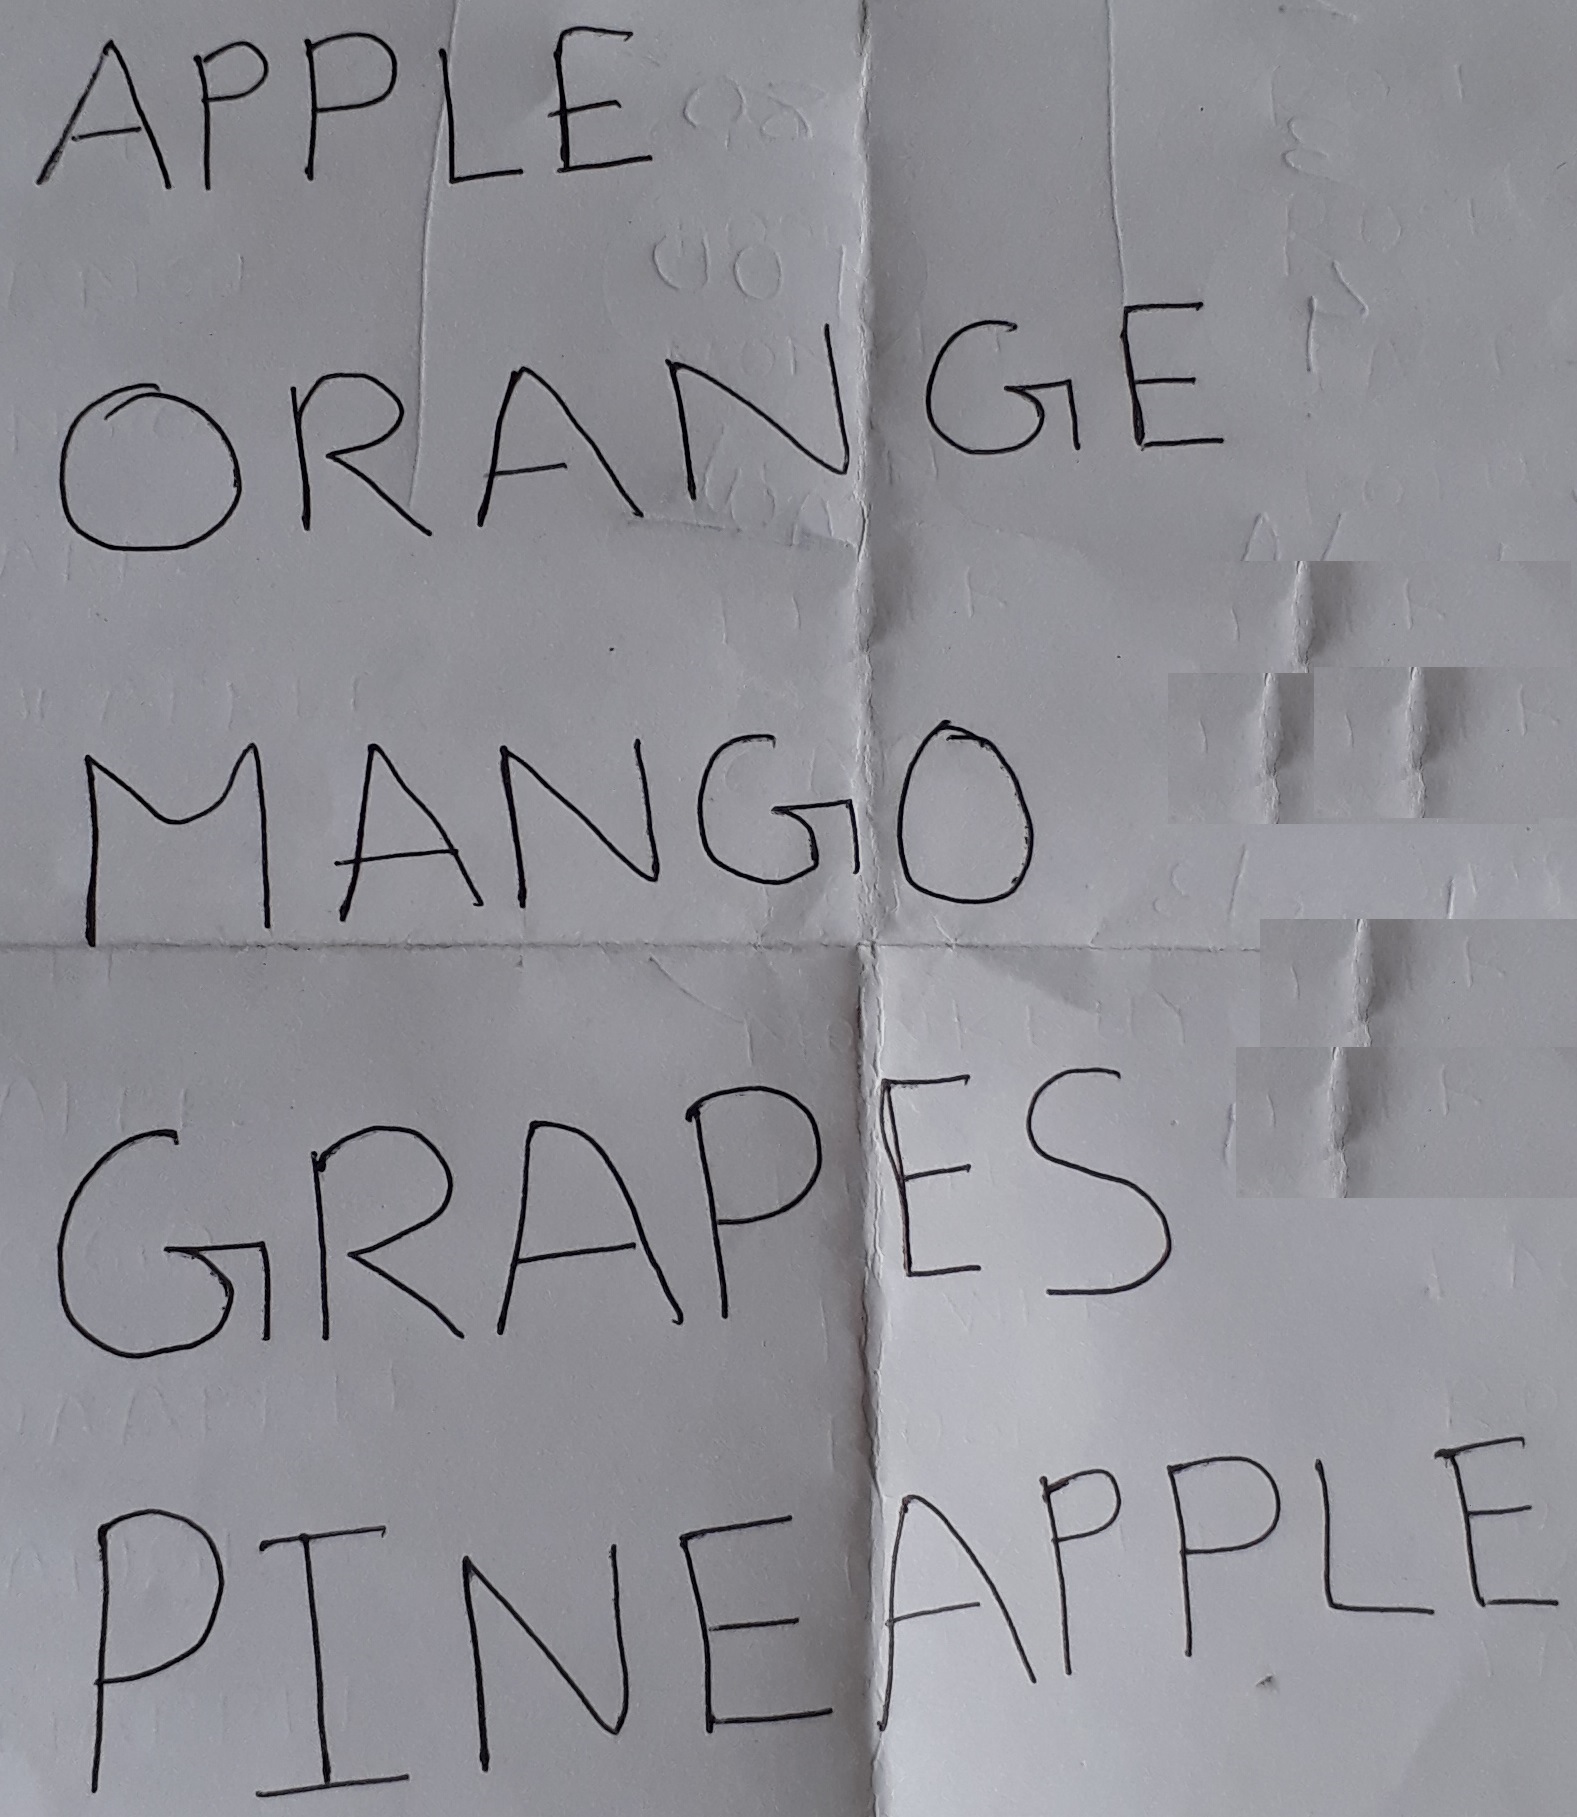 APPLE
ORANGE
MANGO
GRAPES
PINEAPPLE